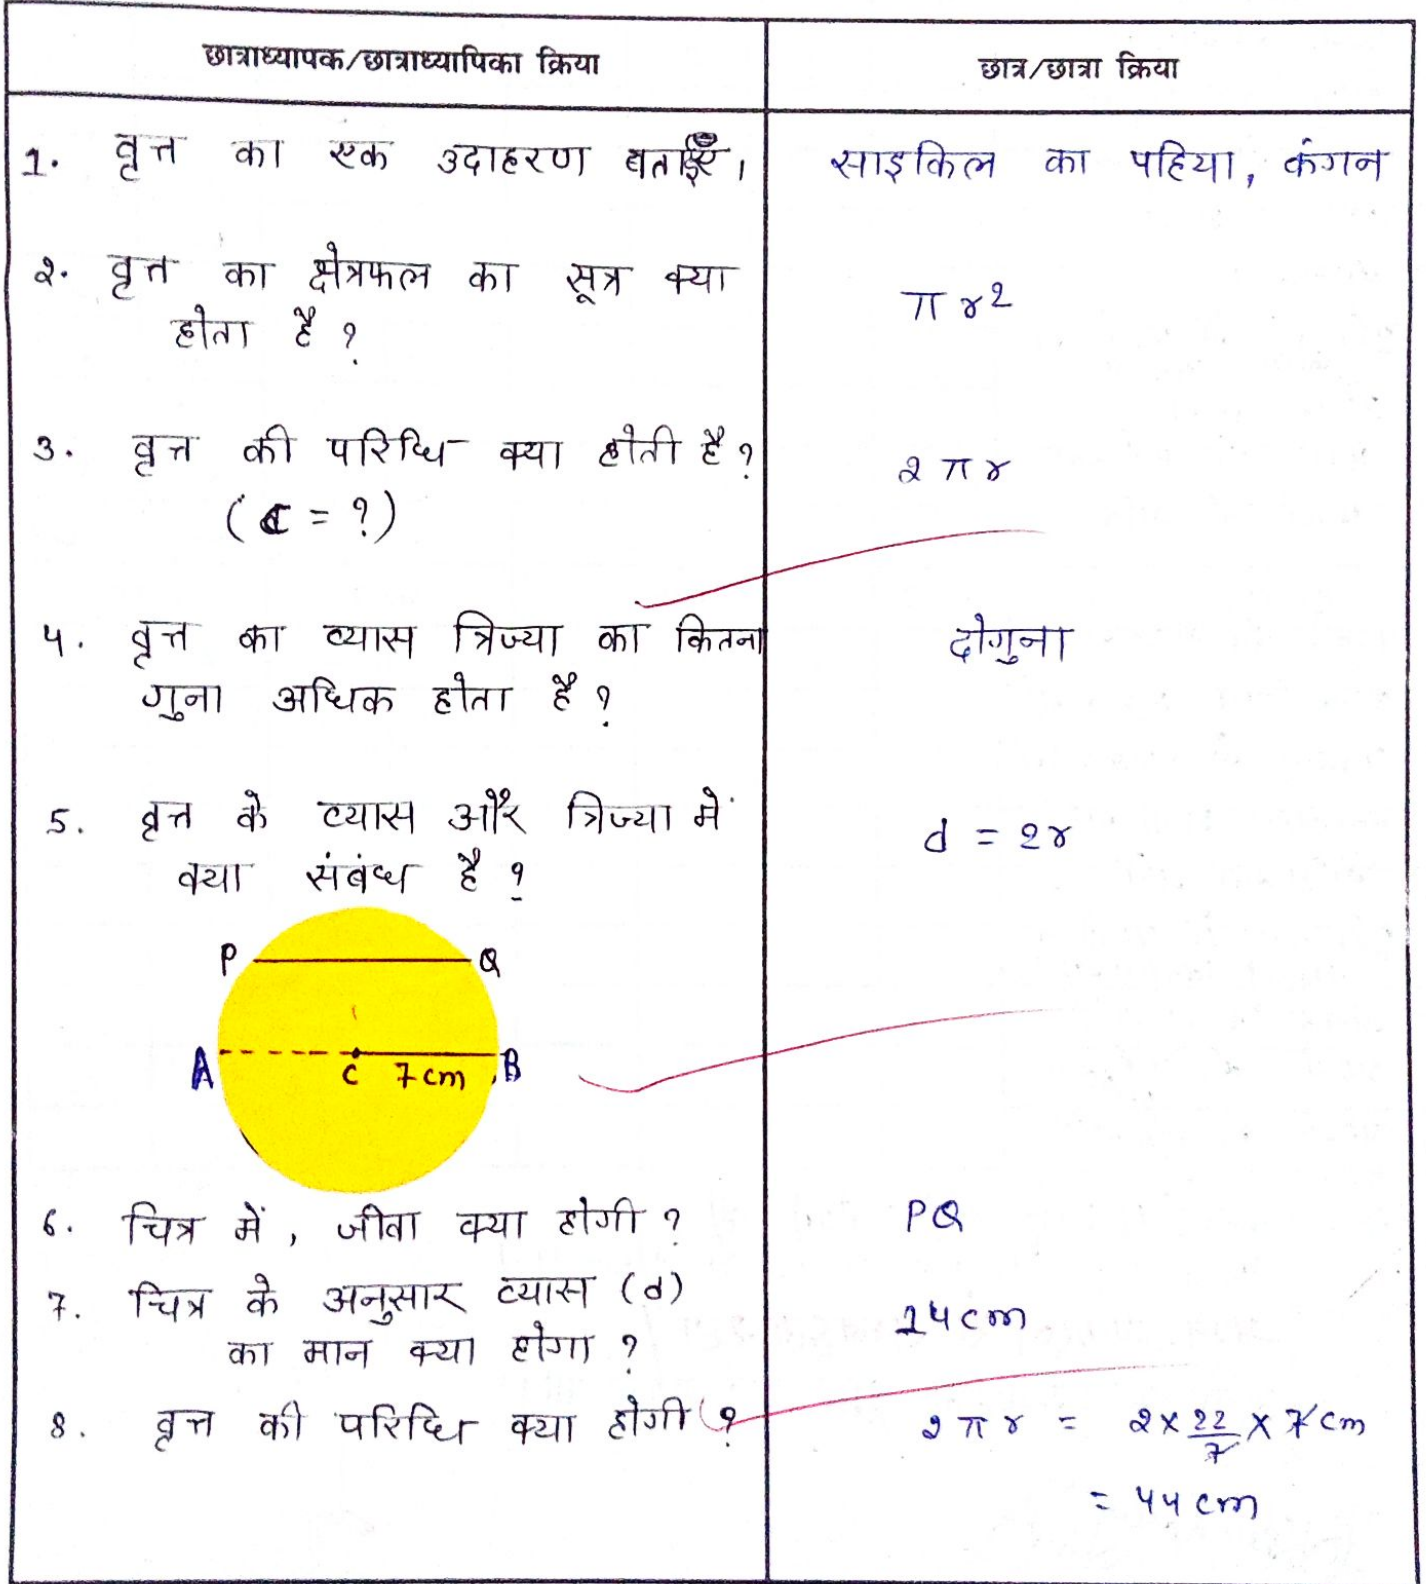 छात्राध्यापक/छात्राध्यापिका क्रिया
छात्र/छात्रा क्रिया
1. वृत्त का एक उदाहरण बताइए।
साइकिल का पहिया, कंगन
2. वृत्त का क्षेत्रफल का सूत्र क्या
होता है ?
πr²
3. वृत्त की परिधि क्या होती है ?
(C = ?)
2πr
4. वृत्त का व्यास त्रिज्या का कितना
गुना अधिक होता है ?
दोगुना
5. वृत्त के व्यास और त्रिज्या में
क्या संबंध है ?
d = 2r
P Q
A C 7cm B
6. चित्र में, जीवा क्या होगी ?
PQ
7. चित्र के अनुसार व्यास (d)
का मान क्या होगा ?
14cm
8. वृत्त की परिधि क्या होगी ?
2πr = 2×22/7×7cm
= 44cm